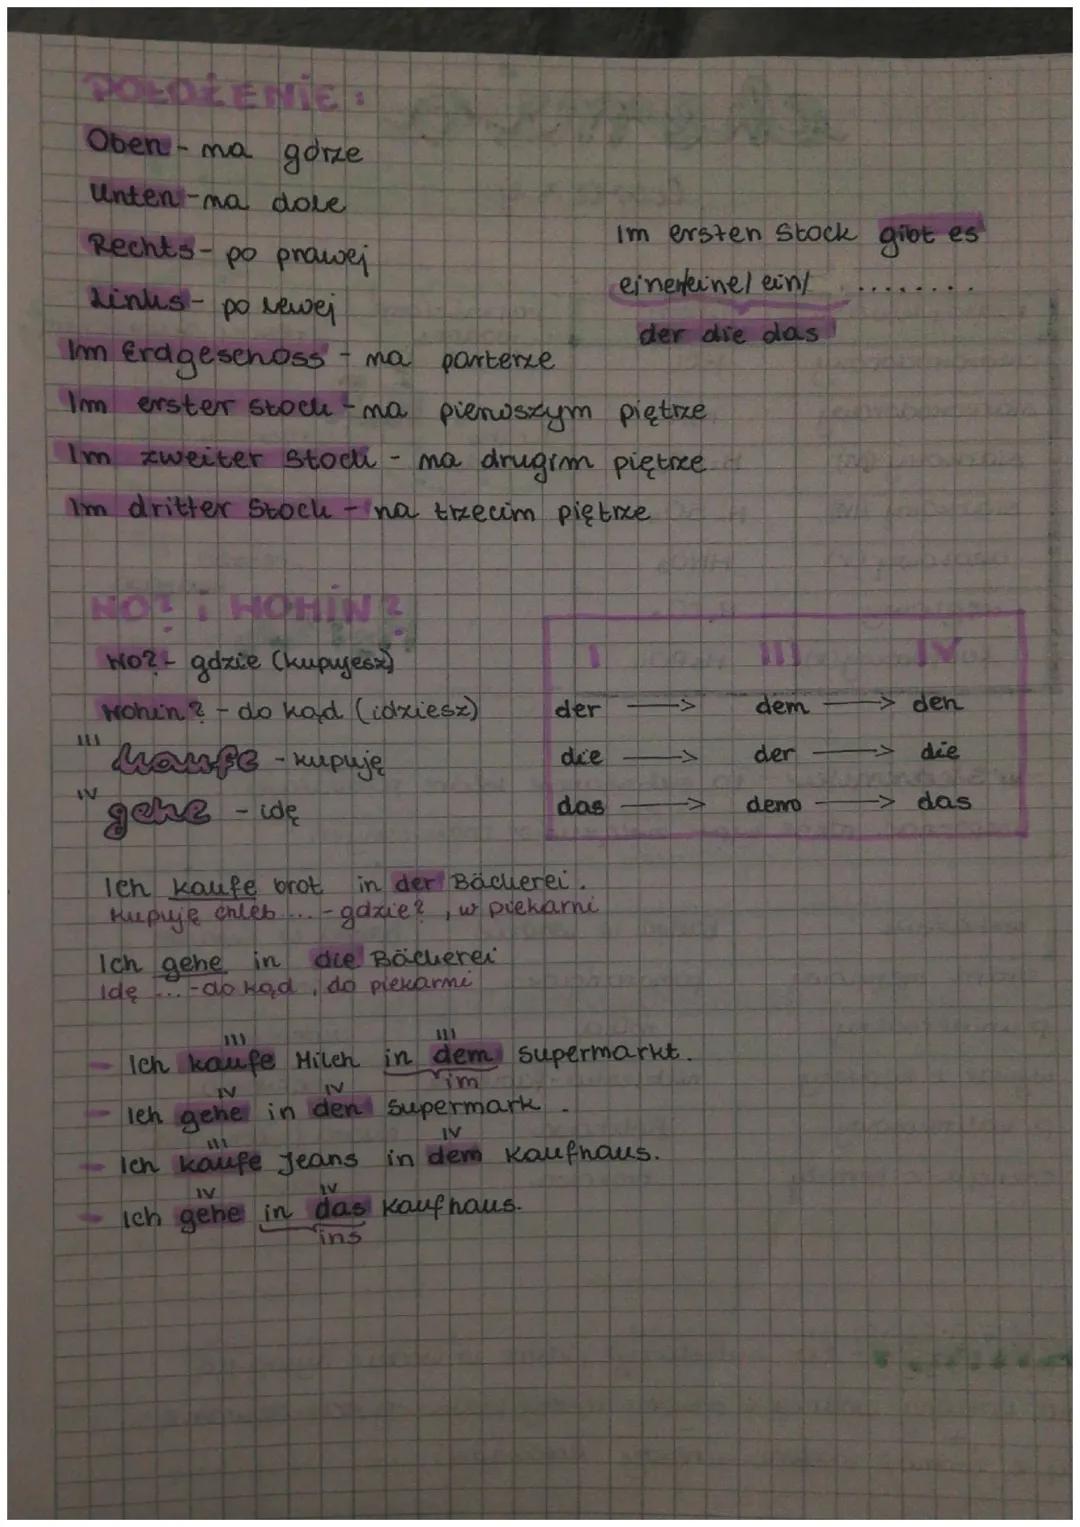 POŁOŻENIE:
Oben - na górze
Unten - na dole
Rechts - po prawej
Links - po lewej
Im Erdgeschoss - na parterze
Im erster Stock - na pierwszym piętrze
Im zweiter Stock - na drugim piętrze
Im dritter Stock - na trzecim piętrze
Im ersten Stock gibt es
einen/eine/ ein/ ........
der die das
WO? i WOHIN?
WO? - gdzie (kupujesz)
Wohin? - do kąd (idziesz)
III kaufe - kupuję
IV gehe - idę
I III IV
der → dem → den
die → der → die
das → dem → das
Ich kaufe brot in der Bäckerei.
Kupuję chleb ... - gdzie?, w piekarni
Ich gehe in die Bäckerei
Idę ... - do kąd, do piekarni
III III
- Ich kaufe Milch in dem Supermarkt.
im
IV IV
- Ich gehe in den Supermark.
III IV
- Ich kaufe Jeans in dem Kaufhaus.
IV IV
- Ich gehe in das Kaufhaus.
ins